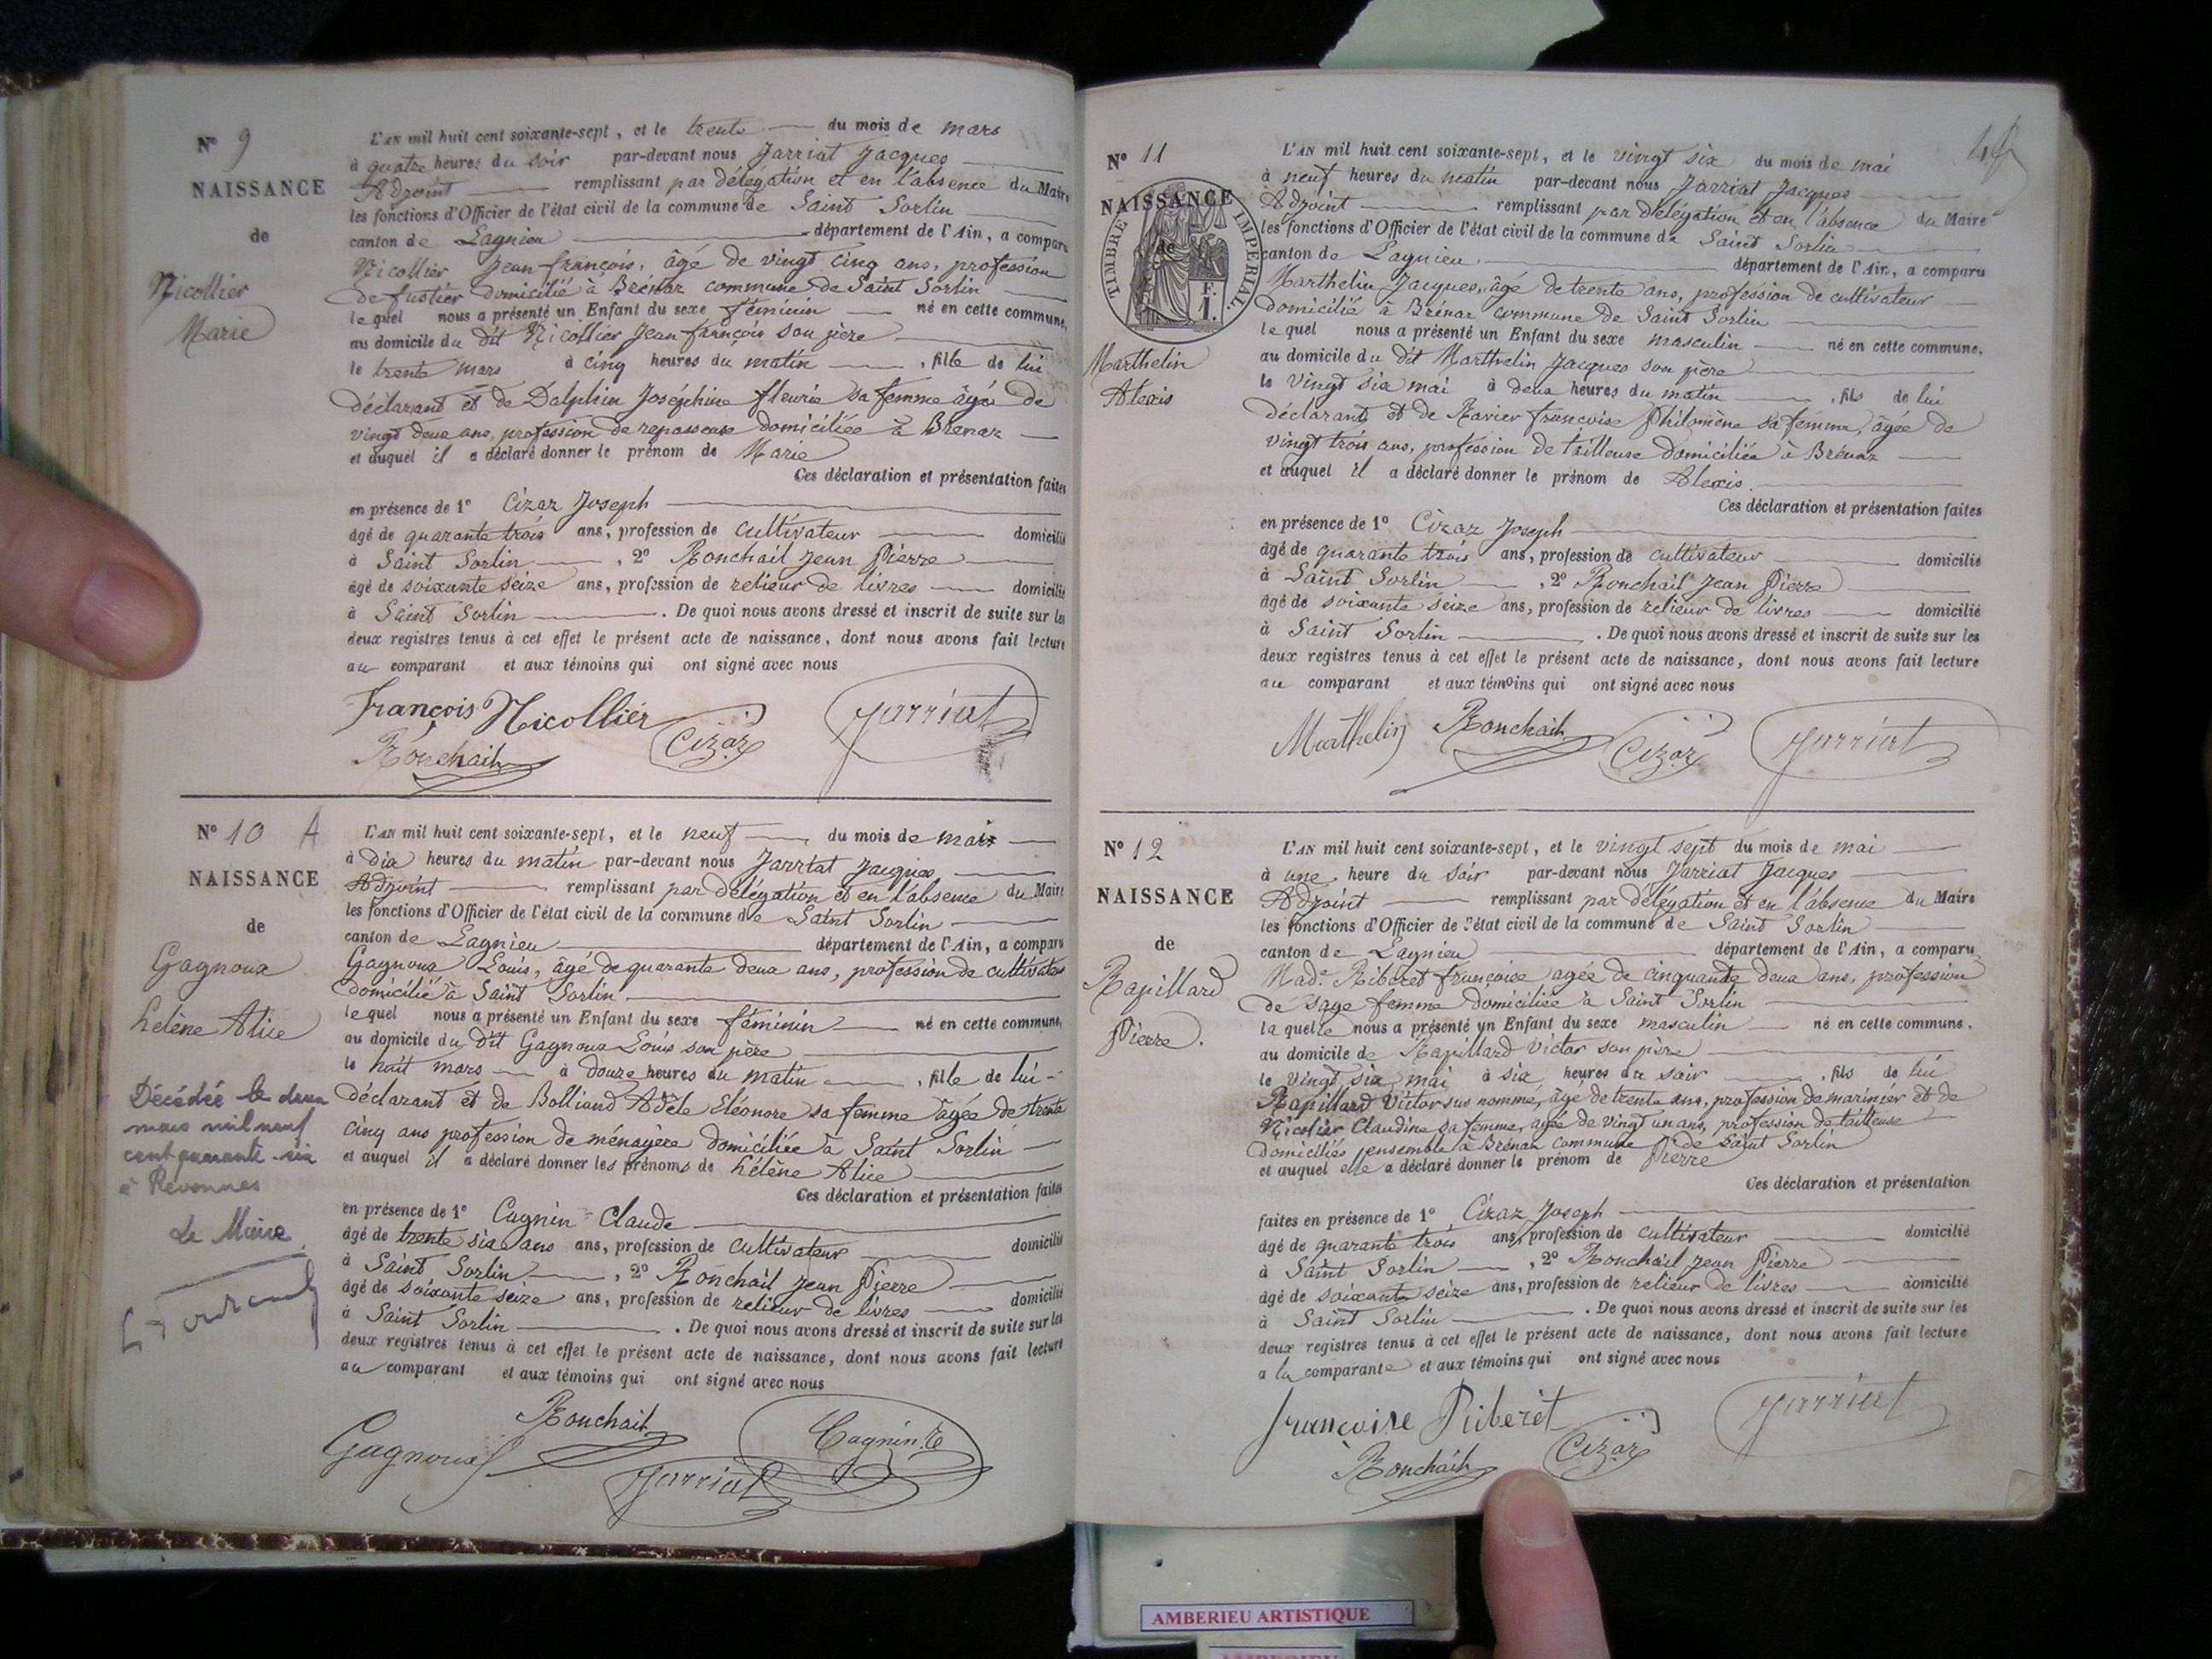 N° 9
NAISSANCE
de
Nicollier
Marie
L'AN mil huit cent soixante-sept, et le trente du mois de mars
à quatre heures du soir par-devant nous Jarriat Jacques
Adjoint remplissant par délégation et en l'absence du Maire
les fonctions d'Officier de l'état civil de la commune de Saint Sorlin
canton de Lagnieu département de l'Ain, a comparu
Nicollier Jean françois, âgé de vingt cinq ans, profession
de fustier domicilié à Brénaz commune de Saint Sorlin
lequel nous a présenté un Enfant du sexe féminin né en cette commune,
au domicile du dit Nicollier Jean farnçois son père
le trente mars à cinq heures du matin, fille de lui
déclarant et de Dalphin Joséphine fleurie sa femme âgée de
vingt deux ans, profession de repasseuse domiciliée à Brénaz
et auquel il a déclaré donner le prénom de Marie
Ces déclaration et présentation faites
en présence de 1° Cizaz Joseph
âgé de quarante trois ans, profession de cultivateur domicilié
à Saint Sorlin, 2° Ronchail Jean Pierre
âgé de soixante seize ans, profession de relieur de livres domicilié
à Saint Sorlin. De quoi nous avons dressé et inscrit de suite sur les
deux registres tenus à cet effet le présent acte de naissance, dont nous avons fait lecture
au comparant et aux témoins qui ont signé avec nous
François Nicollier Cizaz Jarriat
Ronchail
N° 10 A
NAISSANCE
de
Gagnoux
hélène Alice
Décédée le deux
mars mil neuf
cent quarante six
à Revonnas
Le Maire
L'AN mil huit cent soixante-sept, et le neuf du mois de mars
à dix heures du matin par-devant nous Jarriat Jacques
Adjoint remplissant par délégation et en l'absence du Maire
les fonctions d'Officier de l'état civil de la commune de Saint Sorlin
canton de Lagnieu département de l'Ain, a comparu
Gagnoux Louis, âgé de quarante deux ans, profession de cultivateur
domicilié à Saint Sorlin
lequel nous a présenté un Enfant du sexe féminin né en cette commune,
au domicile du dit Gagnoux Louis son père
le huit mars à douze heures du matin, fille de lui
déclarant et de Bolliand Adèle Eléonore sa femme âgée de trente
cinq ans profession de ménagère domiciliée à Saint Sorlin
et auquel il a déclaré donner les prénoms de hélène Alice
Ces déclaration et présentation faites
en présence de 1° Cagnin Claude
âgé de trente six ans ans, profession de cultivateur domicilié
à Saint Sorlin, 2° Ronchail Jean Pierre
âgé de soixante seize ans, profession de relieur de livres domicilié
à Saint Sorlin. De quoi nous avons dressé et inscrit de suite sur les
deux registres tenus à cet effet le présent acte de naissance, dont nous avons fait lecture
au comparant et aux témoins qui ont signé avec nous
Gagnoux Ronchail Cagnin
Jarriat
N° 11
NAISSANCE
de
TIMBRE IMPERIAL.
F.
1.
Marthelin
Alexis
L'AN mil huit cent soixante-sept, et le vingt six du mois de mai
à neuf heures du matin par-devant nous Jarriat Jacques
Adjoint remplissant par délégation et en l'absence du Maire
les fonctions d'Officier de l'état civil de la commune de Saint Sorlin
canton de Lagnieu département de l'Ain, a comparu
Marthelin Jacques, âgé de trente ans, profession de cultivateur
domicilié à Brénaz commune de Saint Sorlin
lequel nous a présenté un Enfant du sexe masculin né en cette commune,
au domicile du dit Marthelin Jacques son père
le vingt six mai à deux heures du matin, fils de lui
déclarant et de Ravier françoise Philomène sa femme, âgée de
vingt trois ans, profession de tailleuse domiciliée à Brénaz
et auquel il a déclaré donner le prénom de Alexis.
Ces déclaration et présentation faites
en présence de 1° Cizaz Joseph
âgé de quarante trois ans, profession de cultivateur domicilié
à Saint Sorlin, 2° Ronchail Jean Pierre
âgé de soixante seize ans, profession de relieur de livres domicilié
à Saint Sorlin. De quoi nous avons dressé et inscrit de suite sur les
deux registres tenus à cet effet le présent acte de naissance, dont nous avons fait lecture
au comparant et aux témoins qui ont signé avec nous
Marthelin Ronchail Cizaz Jarriat
N° 12
NAISSANCE
de
Rapillard
Pierre.
L'AN mil huit cent soixante-sept, et le vingt sept du mois de mai
à une heure du soir par-devant nous Jarriat Jacques
Adjoint remplissant par délégation et en l'absence du Maire
les fonctions d'Officier de l'état civil de la commune de Saint Sorlin
canton de Lagnieu département de l'Ain, a comparu
Made Riberet françoise agée de cinquante deux ans, profession
de sage femme domiciliée à Saint Sorlin
laquelle nous a présenté un Enfant du sexe masculin né en cette commune,
au domicile de Rapillard Victor son père
le vingt six mai à six heures du soir, fils de lui
Rapillard Victor sus nommé, âgé de trente ans, profession de marinier et de
Nicolier Claudine sa femme, agée de vingt un ans, profession de tailleuse
domiciliés ensemble à Brénaz commune de Saint Sorlin
et auquel elle a déclaré donner le prénom de Pierre
Ces déclaration et présentation
faites en présence de 1° Cizaz Joseph
âgé de quarante trois ans, profession de cultivateur domicilié
à Saint Sorlin, 2° Ronchail Jean Pierre
âgé de soixante seize ans, profession de relieur de livres domicilié
à Saint Sorlin. De quoi nous avons dressé et inscrit de suite sur les
deux registres tenus à cet effet le présent acte de naissance, dont nous avons fait lecture
a la comparante et aux témoins qui ont signé avec nous
françoise Riberet Cizaz Jarriat
Ronchail
AMBERIEU ARTISTIQUE